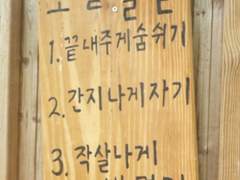 오늘 할 일
1. 끝내주게 숨쉬기
2. 간지나게 자기
3. 작살나게